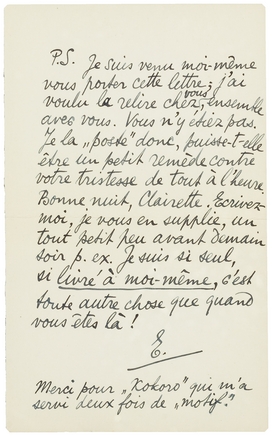 P.S. Je suis venu moi-même
vous porter cette lettre; j'ai
voulu la relire chez vous, ensemble
avec vous. Vous n'y étiez pas.
Je la „poste" donc, puisse-t-elle
être un petit remède contre
votre tristesse de tout à l'heure.
Bonne nuit, Clairette. Ecrivez-
moi, je vous en supplie, un
tout petit peu avant demain
soir p. ex. Je suis si seul,
si livré à moi-même, c'est
toute autre chose que quand
vous êtes là !
E.
Merci pour „Kokoro" qui m'a
servi deux fois de „motif."